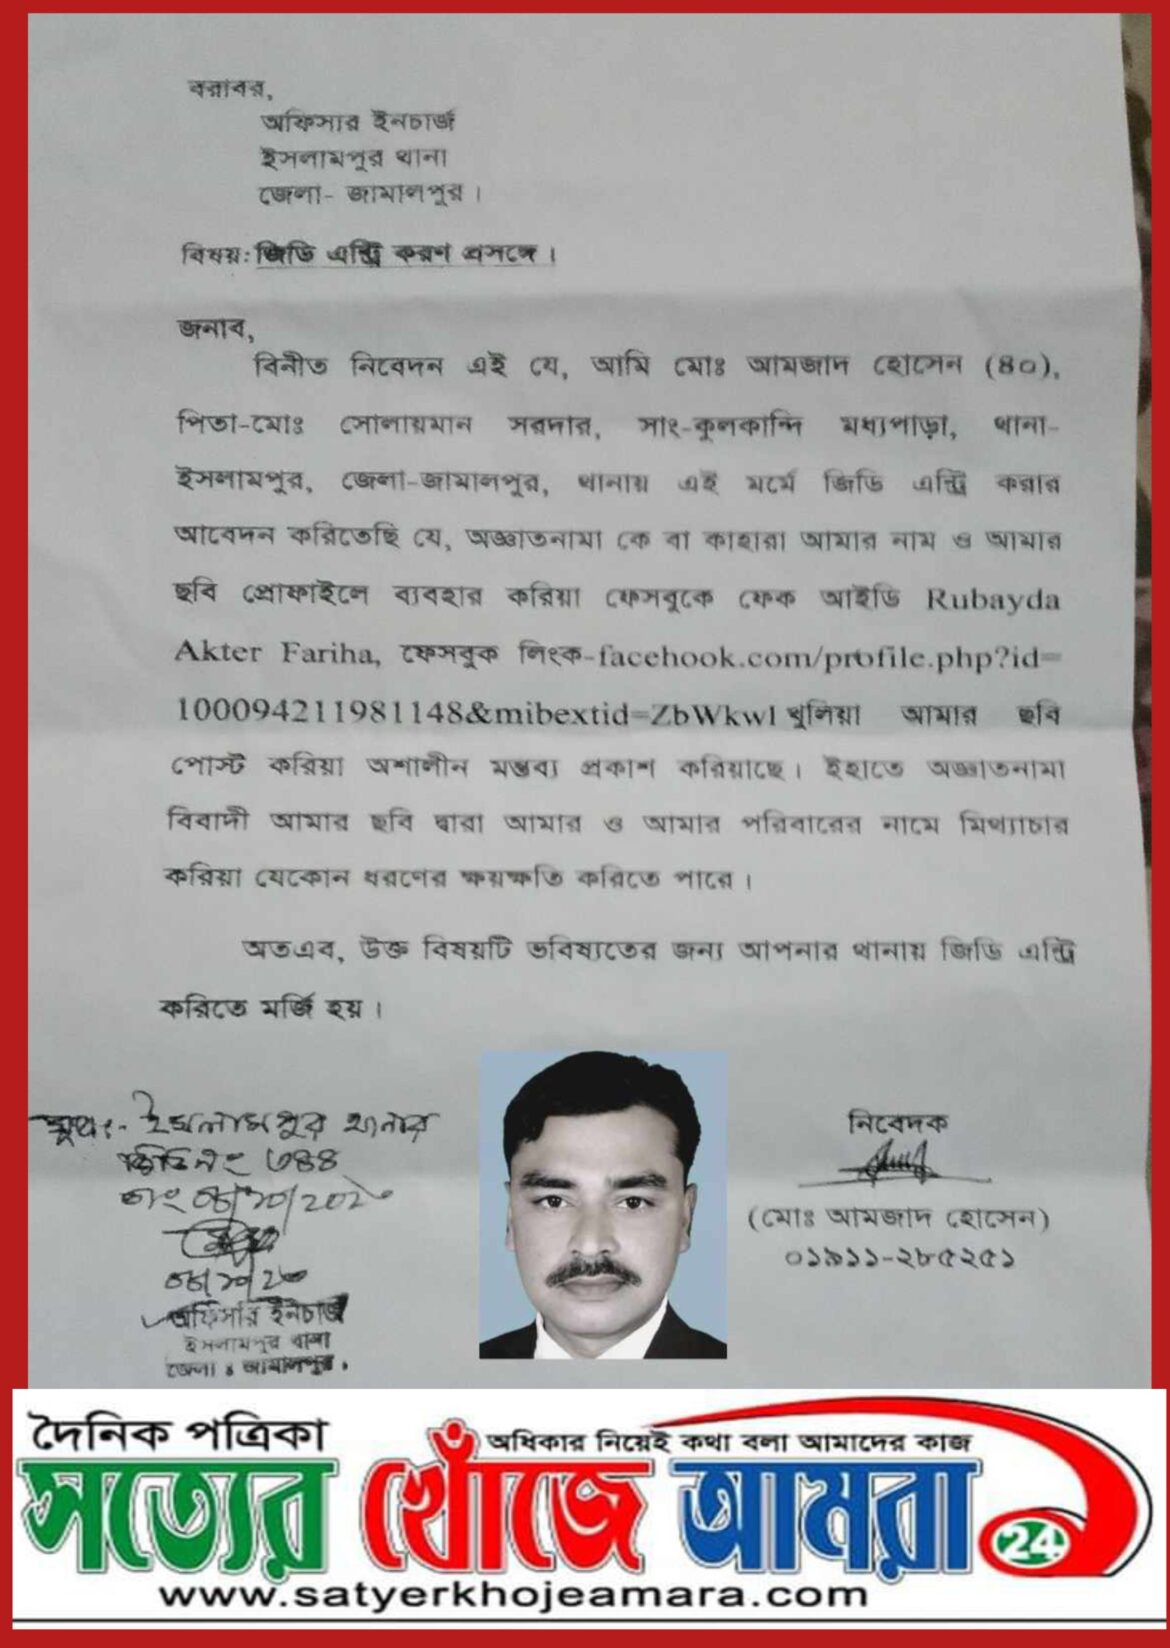 বরাবর,
অফিসার ইনচার্জ
ইসলামপুর থানা
জেলা- জামালপুর।
বিষয়: জিডি এন্ট্রি করণ প্রসঙ্গে।
জনাব,
বিনীত নিবেদন এই যে, আমি মোঃ আমজাদ হোসেন (৪০),
পিতা-মোঃ সোলায়মান সরদার, সাং-কুলকান্দি মধ্যপাড়া, থানা-
ইসলামপুর, জেলা-জামালপুর, থানায় এই মর্মে জিডি এন্ট্রি করার
আবেদন করিতেছি যে, অজ্ঞাতনামা কে বা কাহারা আমার নাম ও আমার
ছবি প্রোফাইলে ব্যবহার করিয়া ফেসবুকে ফেক আইডি Rubayda
Akter Fariha, ফেসবুক লিংক-facehook.com/profile.php?id=
100094211981148&mibextid=ZbWkwl খুলিয়া আমার ছবি
পোস্ট করিয়া অশালীন মন্তব্য প্রকাশ করিয়াছে। ইহাতে অজ্ঞাতনামা
বিবাদী আমার ছবি দ্বারা আমার ও আমার পরিবারের নামে মিথ্যাচার
করিয়া যেকোন ধরণের ক্ষয়ক্ষতি করিতে পারে।
অতএব, উক্ত বিষয়টি ভবিষ্যতের জন্য আপনার থানায় জিডি এন্ট্রি
করিতে মর্জি হয়।
ইসলামপুর থানার
জিডি নং ৩৪৪
তাং
অফিসার ইনচার্জ
ইসলামপুর থানা
জেলা ঃ জামালপুর।
নিবেদক
(মোঃ আমজাদ হোসেন)
০১৯১১-২৮৫২৫১
দৈনিক পত্রিকা
অধিকার নিয়েই কথা বলা আমাদের কাজ
সত্যের খোঁজে আমরা 24
www.satyerkhojeamara.com